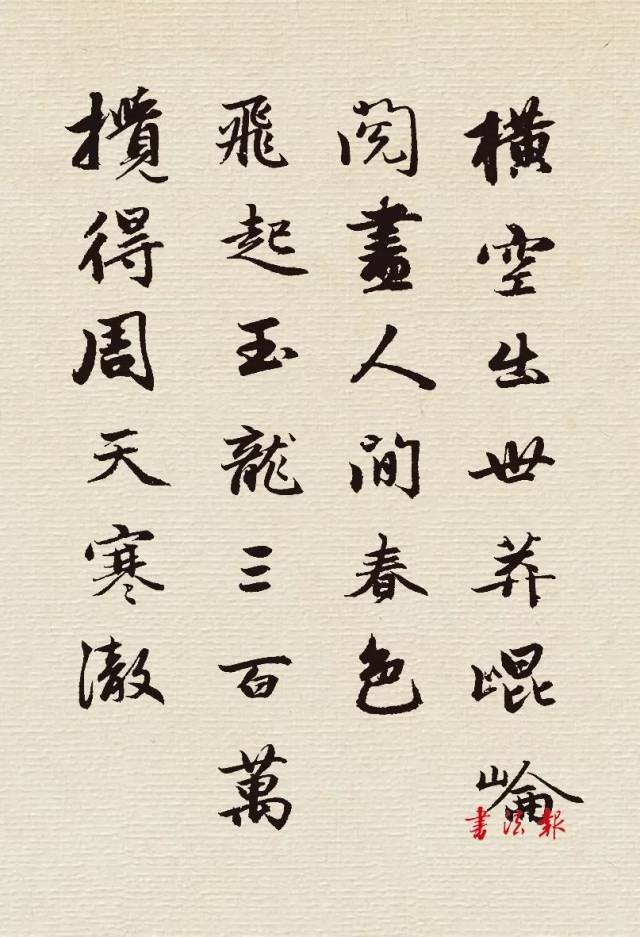 橫空出世莽崐崘
閱盡人間春色
飛起玉龍三百萬
攪得周天寒澈
書法報